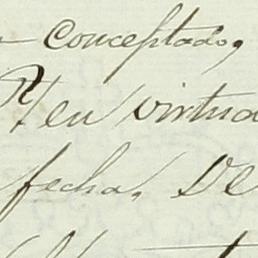 conceptado,
en virtud
fecha, De